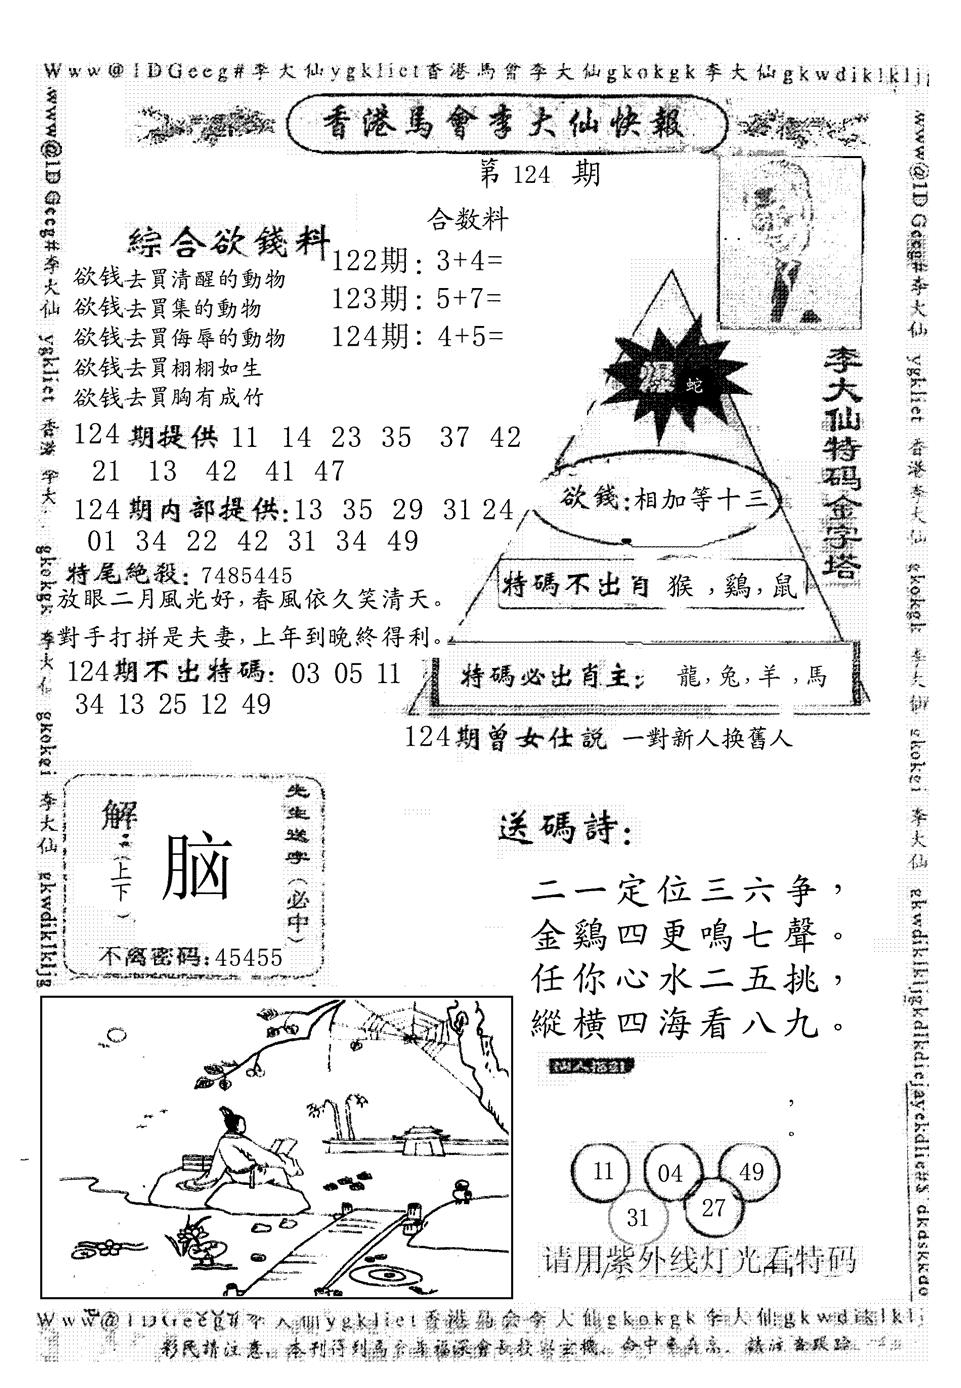 Www@1DGeeg#李大仙ygkliet香港馬會李大仙gkokgk李大仙gkwdiklkljg
香港馬會李大仙快報
第 124 期
合数料
綜合欲錢料
122期：3+4=
123期：5+7=
124期：4+5=
欲钱去買清醒的動物
欲钱去買集的動物
欲钱去買侮辱的動物
欲钱去買栩栩如生
欲钱去買胸有成竹
124期提供 11 14 23 35 37 42
21 13 42 41 47
124期内部提供:13 35 29 31 24
01 34 22 42 31 34 49
特尾絶殺：7485445
放眼二月風光好，春風依久笑清天。
對手打拼是夫妻，上年到晚終得利。
124期不出特碼：03 05 11
34 13 25 12 49
李大仙特码金字塔
爆 蛇
欲錢:相加等十三
特碼不出肖 猴，鷄，鼠
特碼必出肖主： 龍，兔，羊，馬
124期曾女仕説 一對新人换舊人
解：（上下）
脑
先生送字（必中）
不离密码:45455
送碼詩：
二一定位三六争，
金鷄四更鳴七聲。
任你心水二五挑，
縱横四海看八九。
，
。
11 04 49
31 27
请用紫外线灯光看特码
ygkliet香港馬会李大仙gkokgk李大仙gkwdi
彩民請注意